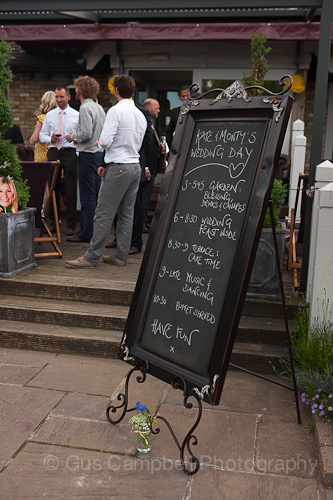 KATE & MONTY'S
WEDDING DAY
5-5:45 GARDEN:
BLESSING,
DRINKS & CANAPES
6-8:30 WEDDING
FEAST INSIDE
8:30-9 TERRACE:
CAKE TIME
9-LATE MUSIC &
DANCING
10:30 BUFFET SERVED
HAVE FUN
X
© Gus Campbell Photography